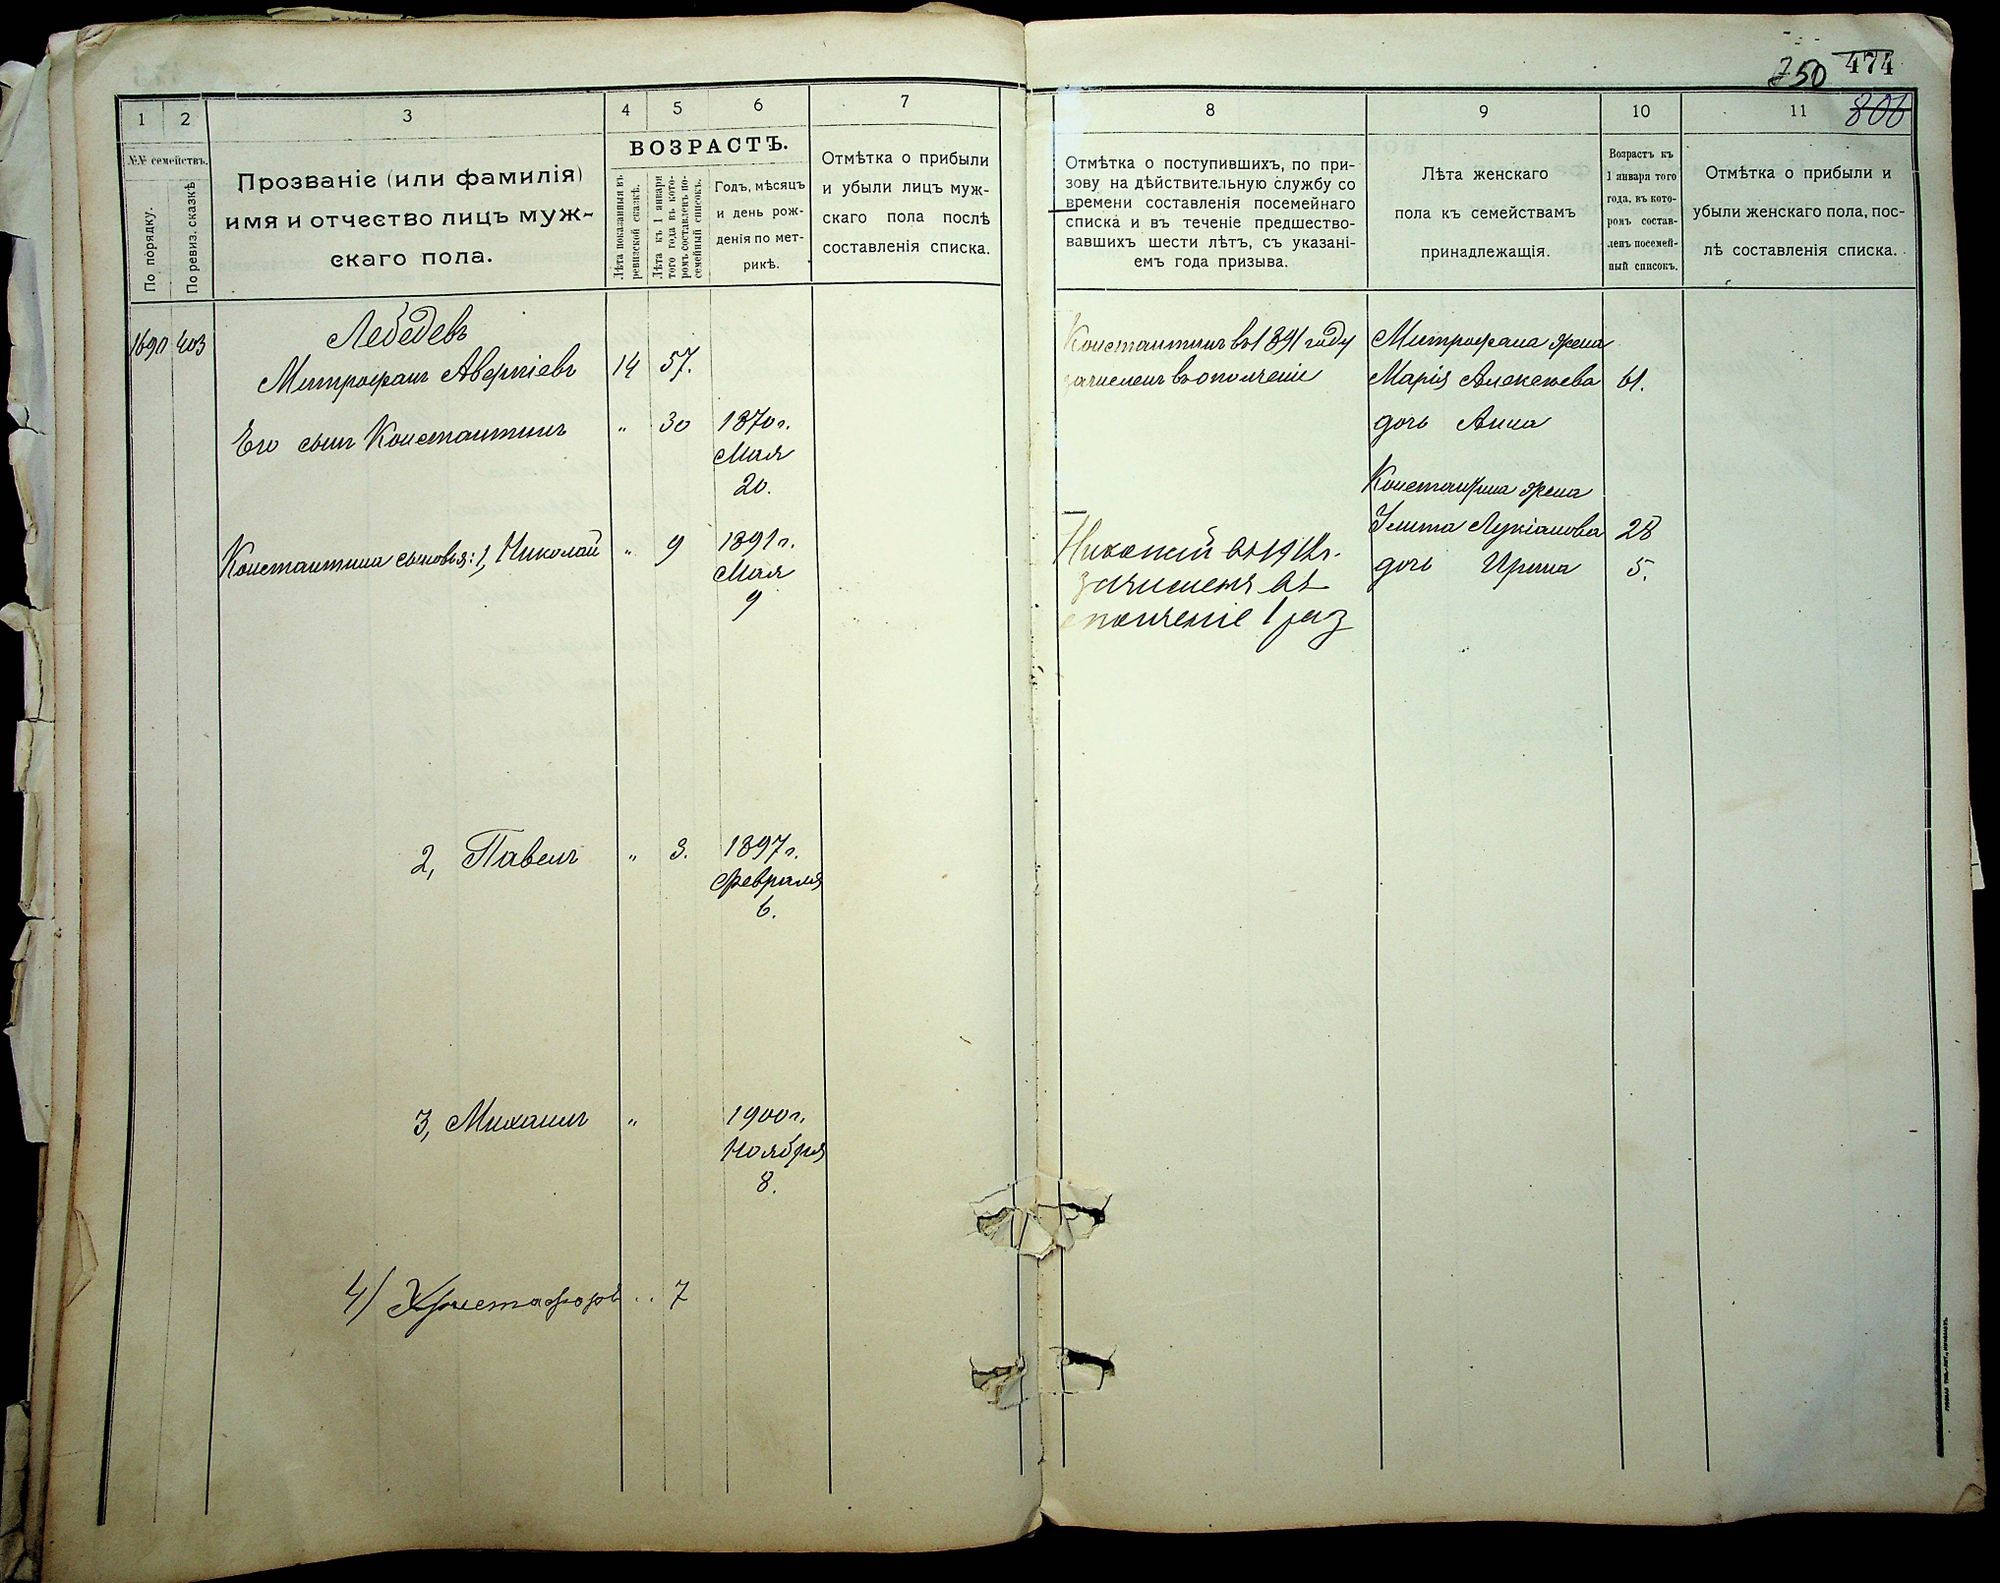 750 474
806
1 2 3 4 5 6 7
№№ семействъ.
По порядку.
По ревиз. сказкѣ
Прозваніе (или фамилія)
имя и отчество лицъ муж-
скаго пола.
ВОЗРАСТЪ.
Лѣта показанныя въ
ревизской сказкѣ.
Лѣта къ 1 января
того года въ кото-
ромъ составленъ по-
семейный списокъ.
Годъ, мѣсяцъ
и день рож-
денія по мет-
рикѣ.
Отмѣтка о прибыли
и убыли лицъ муж-
скаго пола послѣ
составленія списка.
Лебедевъ
403
Митрофанъ Аверкіевъ 14 57.
Его сынъ Константинъ " 30 1870 г.
Мая
20.
Константина сыновья: 1, Николай " 9 1891 г.
Мая
9
2, Павелъ " 3. 1897 г.
Февраля
6.
3, Михаилъ " 1900 г.
Ноября
8.
4) Христофоръ .. 7
8 9 10 11
Отмѣтка о поступившихъ, по при-
зову на дѣйствительную службу со
времени составленія посемейнаго
списка и въ теченіе предшество-
вавшихъ шести лѣтъ, съ указані-
емъ года призыва.
Лѣта женскаго
пола къ семействамъ
принадлежащія.
Возрастъ къ
1 января того
года, въ кото-
ромъ состав-
ленъ посемей-
ный списокъ.
Отмѣтка о прибыли и
убыли женскаго пола, пос-
лѣ составленія списка.
Константинъ въ 1891 году
зачисленъ въ ополченіе
Николай въ 1912 г.
зачисленъ въ
ополченіе 1 раз
Митрофана жена
Марія Алексѣева 61.
дочь Анна
Константина жена
Улита Лукіанова 28
дочь Ирина 5.